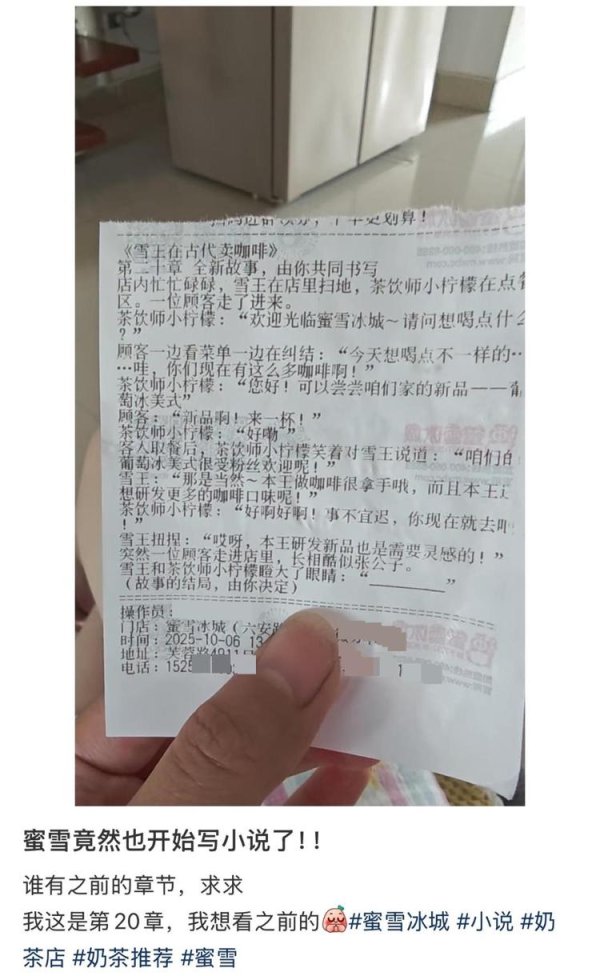 《雪王在古代卖咖啡》
第二十章 全新故事，由你共同书写
店内忙忙碌碌，雪王在店里扫地，茶饮师小柠檬在点餐
区。一位顾客走了进来。
茶饮师小柠檬：“欢迎光临蜜雪冰城～请问想喝点什么
？”
顾客一边看菜单一边在纠结：“今天想喝点不一样的…
…哇，你们现在有这么多咖啡啊！”
茶饮师小柠檬：“您好！可以尝尝咱们家的新品——葡
萄冰美式”
顾客：“新品啊！来一杯！”
茶饮师小柠檬：“好嘞”
客人取餐后，茶饮师小柠檬笑着对雪王说道：“咱们的
葡萄冰美式很受粉丝欢迎呢！”
雪王：“那是当然～本王做咖啡很拿手哦，而且本王还
想研发更多的咖啡口味呢！”
茶饮师小柠檬：“好啊好啊！事不宜迟，你现在就去吧
！”
雪王扭捏：“哎呀，本王研发新品也是需要灵感的！”
突然一位顾客走进店里，长相酷似张公子。
雪王和茶饮师小柠檬瞪大了眼睛：“________”
(故事的结局，由你决定)
操作员：
门店：蜜雪冰城（六安
时间：2025-10-06 13
地址：芙蓉路4911号
电话：1525
1
蜜雪竟然也开始写小说了！！
谁有之前的章节，求求
我这是第20章，我想看之前的#蜜雪冰城 #小说 #奶
茶店 #奶茶推荐 #蜜雪